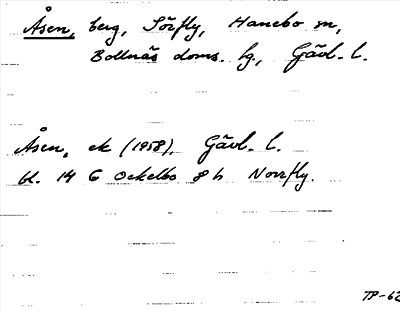 Åsen, berg, Sörfly, Hanebo sn,
Bollnäs doms. hg., Gävl. l.
Åsen, ek (1958), Gävl. l.
bl. 14 G Ockelbo 8 h Norrfly.
TP-62